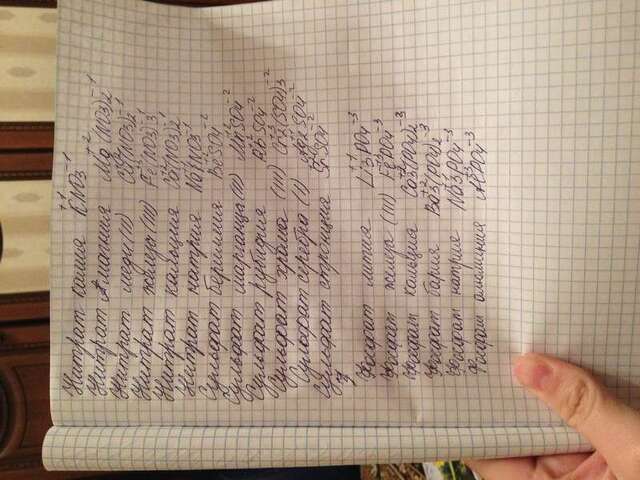 Нитрат калия K⁺¹NO₃⁻¹
Нитрат магния Mg⁺²(NO₃)₂⁻¹
Нитрат меди (II) Cu(NO₃)₂⁻¹
Нитрат железа (III) Fe(NO₃)₃⁻¹
Нитрат кальция Ca⁺²(NO₃)₂⁻¹
Нитрат натрия Na⁺¹NO₃⁻¹
Сульфат бериллия Be⁺²SO₄⁻²
Сульфат марганца (II) Mn⁺²SO₄⁻²
Сульфат рубидия SO₄⁻²
Сульфат хрома (III) Cr₂⁺³(SO₄)₃⁻²
Сульфат серебра (I) Ag₂⁺¹SO₄⁻²
Сульфат стронция SrSO₄⁻²
Фосфат лития Li₃⁺¹PO₄⁻³
Фосфат железа (III) Fe⁺³PO₄⁻³
Фосфат кальция Ca₃⁺²(PO₄)₂⁻³
Фосфат бария Ba₃⁺²(PO₄)₂⁻³
Фосфат натрия Na₃⁺¹PO₄⁻³
Фосфат алюминия Al⁺³PO₄⁻³